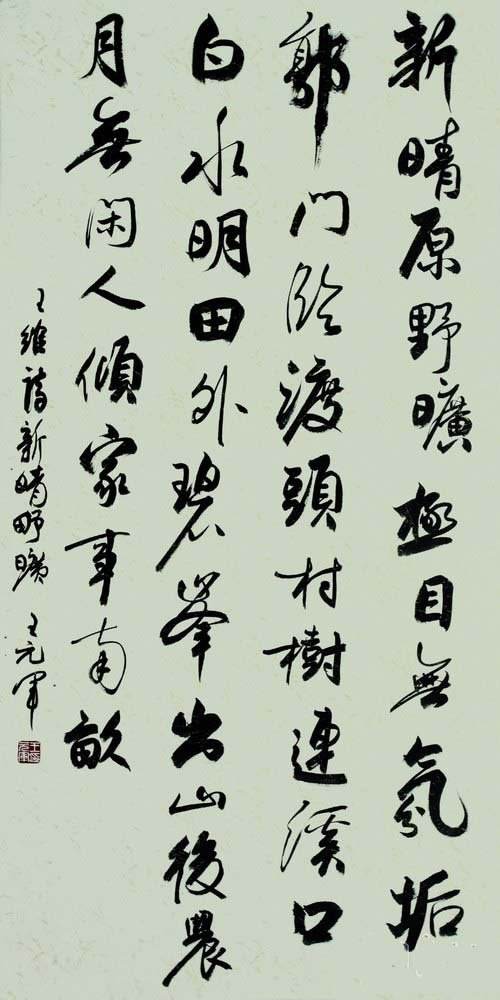 新晴原野曠極目無氛垢
郭門臨渡頭村樹連溪口
白水明田外碧峯出山後農
月無閑人傾家事南畝
王維詩新晴野曠 王元軍